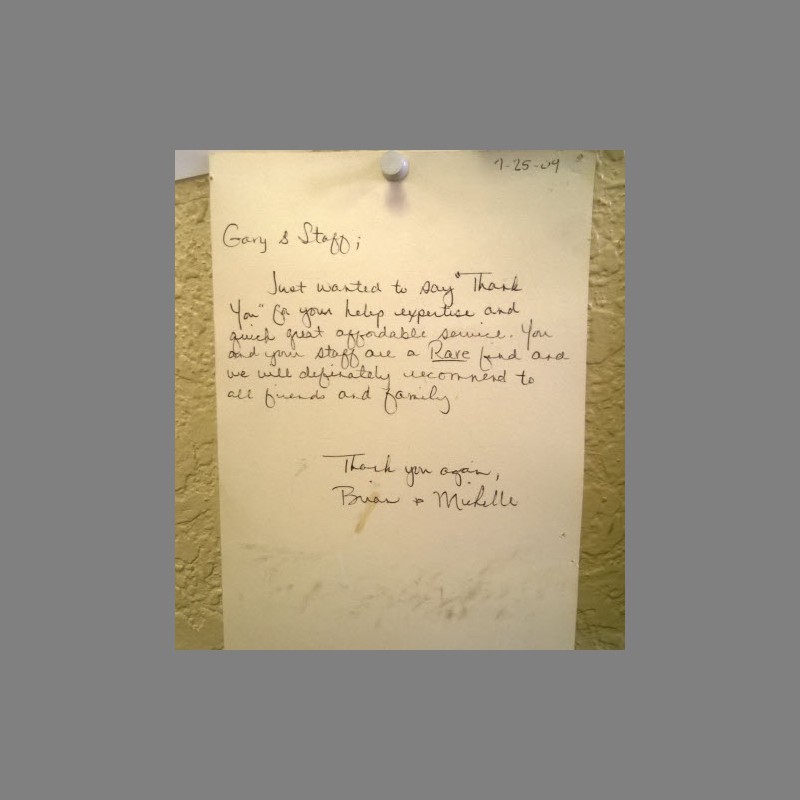 7-25-09
Gary & Staff;
Just wanted to say "Thank
You" for your help expertise and
quick great affordable service. You
and your staff are a Rare find and
we will definately recommend to
all friends and family.
Thank you again,
Brian & Michelle